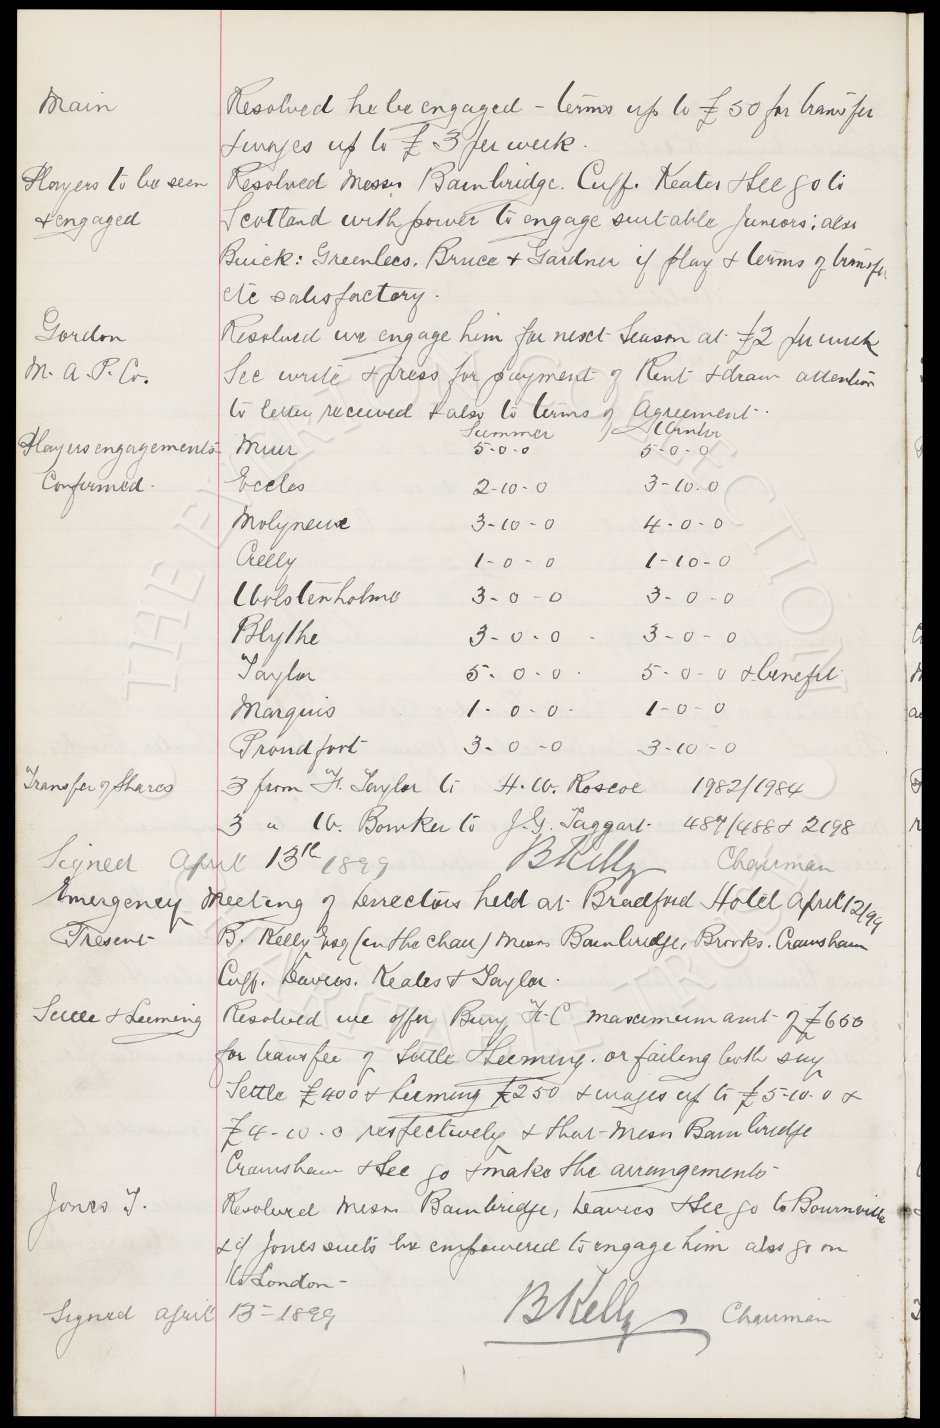 Main Resolved he be engaged - terms up to £50 for transfer
& wages up to £3 per week.
Players to be seen Resolved Messrs Bainbridge. Cuff. Keates & Sec go to
& engaged Scotland with power to engage suitable Juniors; also
Buick: Greenlees. Bruce & Gardner if play & terms of transfer
etc satisfactory.
Gordon Resolved we engage him for next Season at £2 per week
M. A. P. Co. Sec write & press for payment of Rent & draw attention
to letter received & also to terms of Agreement.
Summer Winter
Players engagements Muir 5-0-0 5-0-0
Confirmed. Eccles 2-10-0 3-10-0
Molyneux 3-10-0 4-0-0
Crelly 1-0-0 1-10-0
Wolstenholme 3-0-0 3-0-0
Blythe 3-0-0 3-0-0
Taylor 5-0-0 5-0-0 & benefit
Marquis 1-0-0 1-0-0
Proudfoot 3-0-0 3-10-0
Transfer of Shares 3 from F. Taylor to H. W. Roscoe 1982/1984
3 " W. Bowker to J. G. Taggart 487/488 & 2198
Signed April 13th 1899 B Kelly Chairman
Emergency Meeting of Directors held at Bradford Hotel April 12/99
Present B. Kelly Esq (in the chair) Messrs Bainbridge, Brooks. Crawshaw
Cuff. Davies. Keates & Taylor.
Settle & Leeming Resolved we offer Bury F.C maximum amt of £600
for transfer of Settle & Leeming. or failing both say
Settle £400 & Leeming £250 & wages up to £5-10-0 &
£4-10-0 respectively & that Messrs Bainbridge
Crawshaw & Sec go & make the arrangements
Jones T. Resolved Messrs Bainbridge, Davies & Sec go to Bournville
& if Jones suits be empowered to engage him also go on
to London -
Signed April 13 = 1899 B Kelly Chairman
THE EVERTON COLLECTION
CHARITABLE TRUST